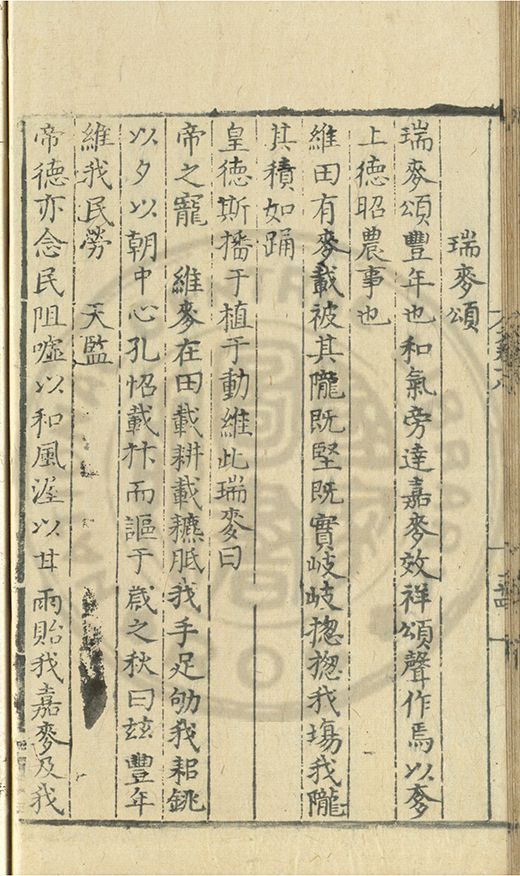 瑞麥頌
瑞麥頌豐年也和氣旁達嘉麥效祥頌聲作焉以麥
上德昭農事也
維田有麥載被其隴既堅既實岐岐揔揔我塲我隴
其積如踊
皇德斯播于植于動維此瑞麥曰
帝之寵　維麥在田載耕載穮胝我手足劬我耜銚
以夕以朝中心孔怊載抃而謳于歲之秋曰玆豐年
維我民勞　天監
帝德亦念民阻噓以和風渥以甘雨貽我嘉麥及我